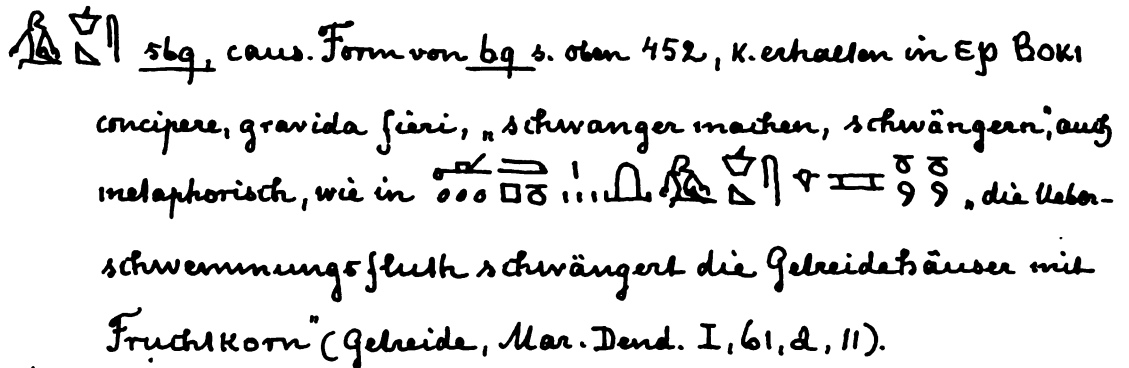 sbq, caus. Form von bq s. oben 452, K. erhalten in ⲉⲣ ⲃⲟⲕⲓ
concipere, gravida fieri, „schwanger machen, schwängern“, auch
metaphorisch, wie in „die Ueber-
schwemmungsfluth schwängert die Getreidehäuser mit
Fruchtkorn“ (Getreide, Mar. Dend. I, 61, d, 11).